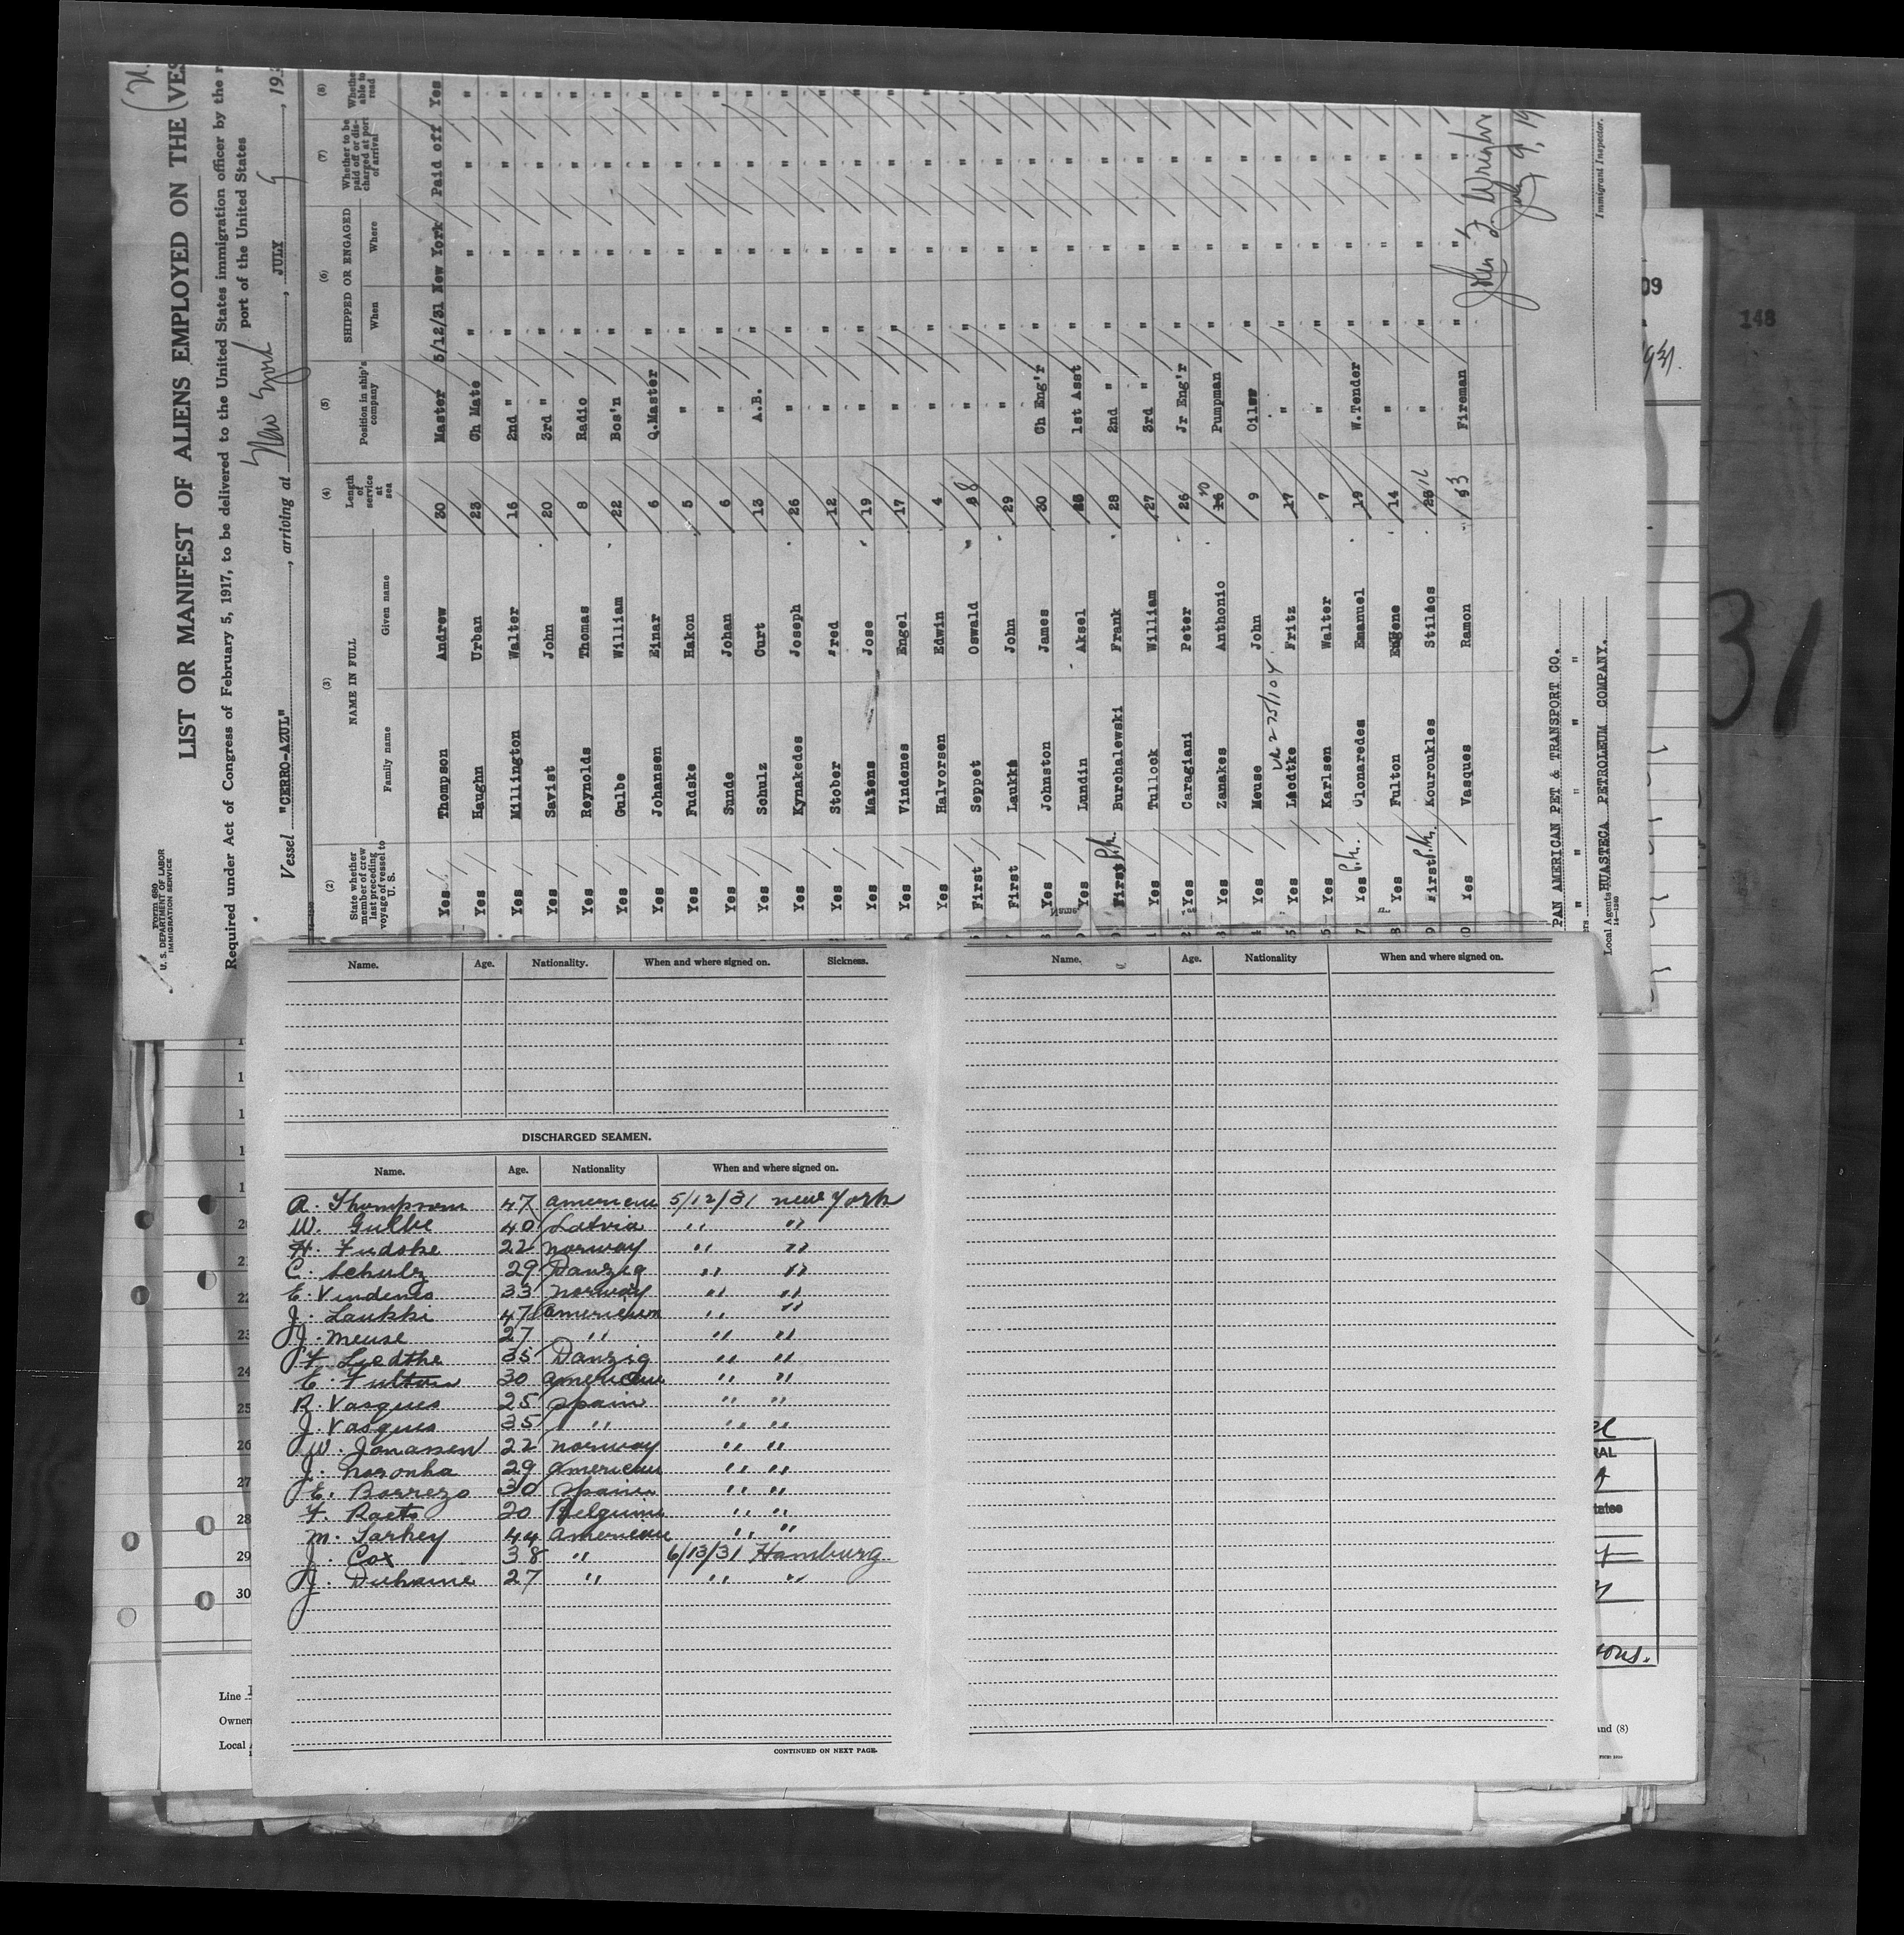 Form 680
U. S. DEPARTMENT OF LABOR
IMMIGRATION SERVICE
LIST OR MANIFEST OF ALIENS EMPLOYED ON THE VES
Required under Act of Congress of February 5, 1917, to be delivered to the United States immigration officer by the r
port of the United States
Vessel "CERRO-AZUL", arriving at New York, JULY 9, 193
(2) (3) (4) (5) (6) (7) (8)
State whether member of crew last preceding voyage of vessel to U. S. NAME IN FULL Length of service at sea Position in ship's company SHIPPED OR ENGAGED Whether to be paid off or discharged at port of arrival Whether able to read
Family name Given name When Where
Yes Thompson Andrew 30 Master 5/12/31 New York Paid off Yes
Yes Haughn Urban 23 Ch Mate " " " "
Yes Millington Walter 16 2nd " " " " "
Yes Savist John 20 3rd " " " " "
Yes Reynolds Thomas 8 Radio " " " "
Yes Gulbe William 22 Bos'n " " " "
Yes Johansen Einar 6 Q.Master " " " "
Yes Fudske Hakon 5 " " " " "
Yes Sunde Johan 6 " " " " "
Yes Schulz Curt 13 A.B. " " " "
Yes Kynakedes Joseph 26 " " " " "
Yes Stober Fred 12 " " " " "
Yes Matens Jose 19 " " " " "
Yes Vindenes Engel 17 " " " " "
Yes Halvorsen Edwin 4 " " " " "
First Seppet Oswald 8 " " " " "
First Laukki John 29 " " " " "
Yes Johnston James 30 Ch Eng'r " " " "
Yes Lundin Aksel 1st Asst " " " "
First Burchalewski Frank 28 2nd " " " " "
Yes Tullock William 27 3rd " " " " "
Yes Caragiani Peter 26 Jr Eng'r " " " "
Yes Zanakes Anthonio Pumpman " " " "
Yes Meuse John 9 Oiler " " " "
Yes Liedtke Fritz 17 " " " " "
Yes Karlsen Walter 7 " " " " "
Yes Clonaredes Emanuel 19 W.Tender " " " "
Yes Fulton Eugene 14 " " " " "
First Kouroukles Stilios " " " " "
Yes Vasques Ramon Fireman " " " "
PAN AMERICAN PET & TRANSPORT CO.
" " " "
Local Agents HUASTECA PETROLEUM COMPANY.
14—1240
John F. Wright
July 9, 19
Immigrant Inspector.
09
148
31
Name. Age. Nationality. When and where signed on. Sickness.
DISCHARGED SEAMEN.
Name. Age. Nationality When and where signed on.
A. Thompson 47 American 5/12/31 New York
W. Gulbe 40 Latvia " "
H. Fudske 22 Norway " "
C. Schulz 29 Danzig " "
E. Vindenes 33 Norway " "
J. Laukki 47 American " "
J. Meuse 27 " " "
F. Liedtke 35 Danzig " "
E. Fulton 30 American " "
R. Vasques 25 Spain " "
J. Vasques 35 " " "
W. Jonassen 22 Norway " "
J. Noronha 29 American " "
E. Borrezo 30 Spain " "
F. Raets 20 Belguim " "
M. Sarkey 44 American " "
J. Cox 38 " 6/13/31 Hamburg
J. Duhaine 27 " " "
CONTINUED ON NEXT PAGE.
Name. Age. Nationality When and where signed on.
21
22
23
24
25
26
27
28
29
30
Line
Owner
Local
and (8)